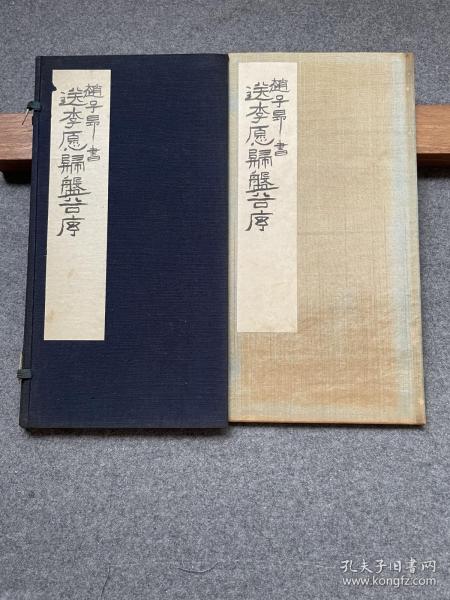 趙子昂書
送李愿歸盤谷序
趙子昂書
送李愿歸盤谷序
孔夫子旧书网
www.kongfz.com